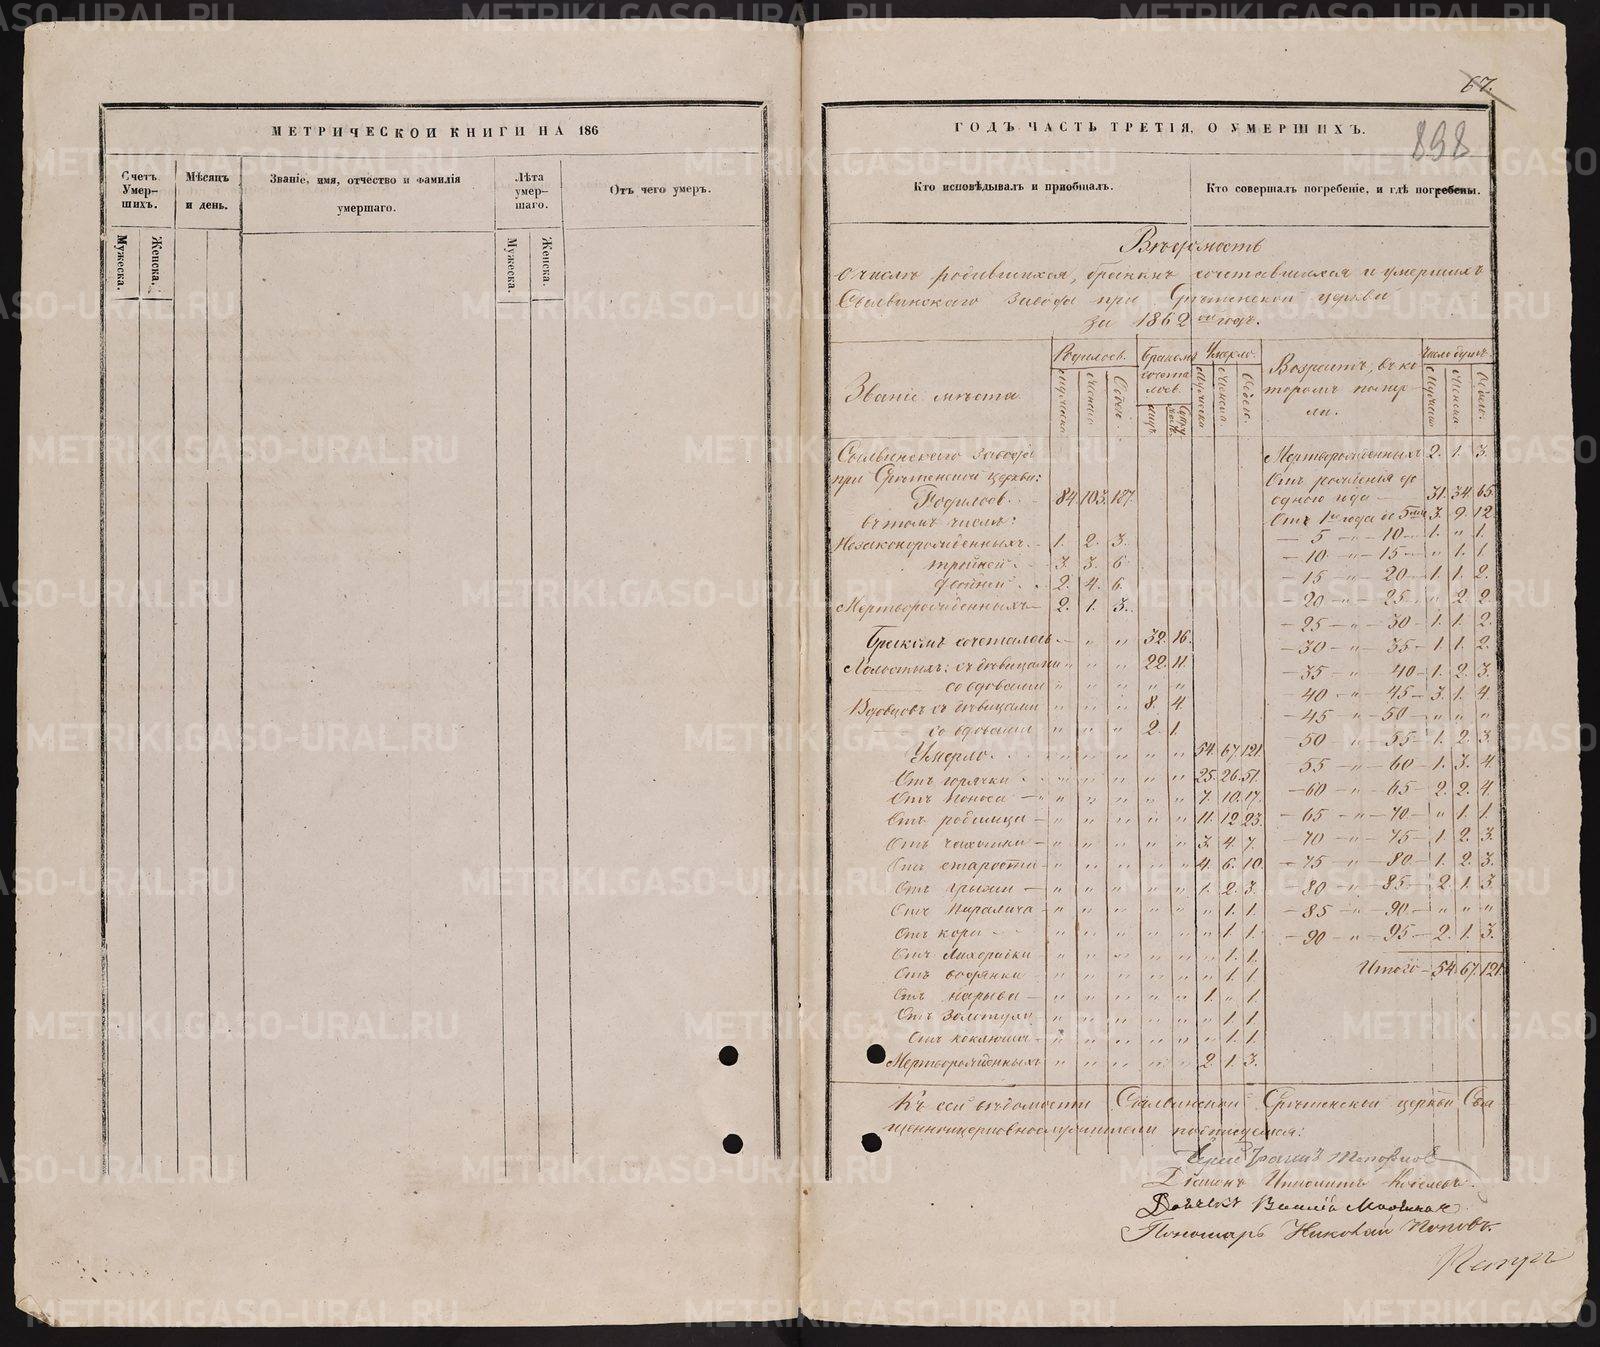 67.
898
МЕТРИЧЕСКОИ КНИГИ НА 186
Счетъ Умер- шихъ.
Мѣсяцъ и день.
Званіе, имя, отчество и фамилія умершаго.
Лѣта умер- шаго.
Отъ чего умеръ.
Мужеска.
Женска.
Мужеска.
Женска.
ГОДЪ ЧАСТЬ ТРЕТІЯ, О УМЕРШИХЪ.
Кто исповѣдывалъ и пріобщалъ.
Кто совершалъ погребеніе, и гдѣ погребены.
Вѣдомость
о числѣ родившихся, бракомъ сочетавшихся и умершихъ
Сылвинскаго завода при Срѣтенской церкви
за 1862 ой годъ.
Званіе мѣста
Родилось.
мужеска
женска
Обоего.
Бракомъ сочета лось.
лицъ
Умерло.
Мужеска
женска
Обоего.
Возрастъ, въ ко торомъ помер ли.
Число душъ.
Мужеска
женска
Обоего.
Сылвинскаго завода
при Срѣтенской церкви:
Родилось. 84. 103. 187.
въ томъ числѣ:
Незаконорожденныхъ. 1. 2. 3.
тройней. 3. 3. 6
двойней. 2. 4. 6.
Мертворожденныхъ 2. 1. 3.
Бракомъ сочеталось " " 32. 16.
Холостыхъ: съ дѣвицами " " " 22. 11.
со вдовами " " " " "
Вдовцовъ съ дѣвицами " " " 8. 4.
со вдовами " " " 2. 1.
Умерло. " " " " " 54. 67. 121.
Отъ горячки " " " " " 25. 26. 51.
Отъ поноса " " " " " 7. 10. 17.
Отъ родимца " " " " " 11. 12. 23.
Отъ чахотки " " " " " 3. 4. 7.
Отъ старости " " " " " 4. 6. 10.
Отъ грыжи " " " " " 1. 2. 3.
Отъ паралича " " " " " " 1. 1.
Отъ кори " " " " " " 1. 1.
Отъ лихорадки " " " " " " 1. 1.
Отъ водянки " " " " " " 1. 1
Отъ нарыва " " " " " 1. " 1.
Отъ золотухи " " " " " " 1. 1
Отъ коклюша " " " " " " 1. 1.
Мертворожденныхъ " " " " " 2. 1. 3.
Мертворожденныхъ 2. 1. 3.
Отъ рожденія до
одного года 31. 34. 65.
Отъ 1го года до 5ти 3. 9. 12.
— 5 " 10 1. " 1.
— 10 " 15 " 1. 1.
— 15 " 20 1. 1. 2.
— 20 " 25 " 2. 2.
— 25 " 30 1. 1. 2.
— 30 " 35 1. 1. 2.
— 35 " 40 1. 2. 3.
— 40 " 45 3. 1. 4
— 45 " 50 " " "
— 50 " 55 1. 2. 3.
— 55 " 60 1. 3. 4.
— 60 " 65 2. 2. 4.
— 65 " 70 " 1. 1.
— 70 " 75 1. 2. 3.
— 75 " 80 1. 2. 3.
— 80 " 85 2. 1. 3.
— 85 " 90 " " "
— 90 " 95 2. 1. 3.
Итого 54. 67. 121.
Къ сей вѣдомости Сылвинской Срѣтенской церкви Свя
щенноцерковнослужители подписуемся:
Діаконъ Ипполитъ
Дьячекъ Василій
Пономарь Николай Поповъ.
METRIKI.GASO-URAL.RU